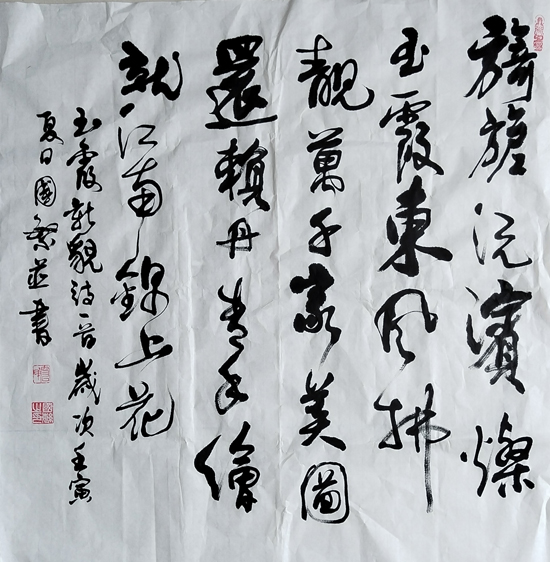 旖旎沅濱燦
玉霞東風拂
靚萬千家美圖
還賴丹青手繪
就江南錦上花
玉霞新貌詩一首歲次壬寅
夏日國繁並書